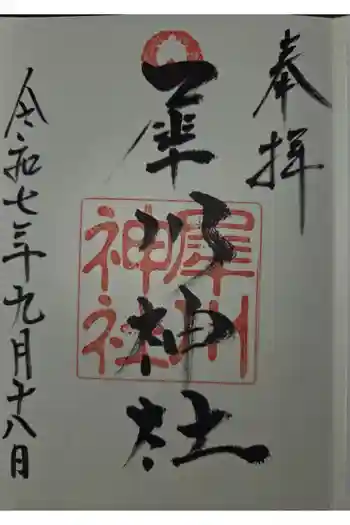 奉拝
犀川神社
犀川
神社
令和七年九月十八日